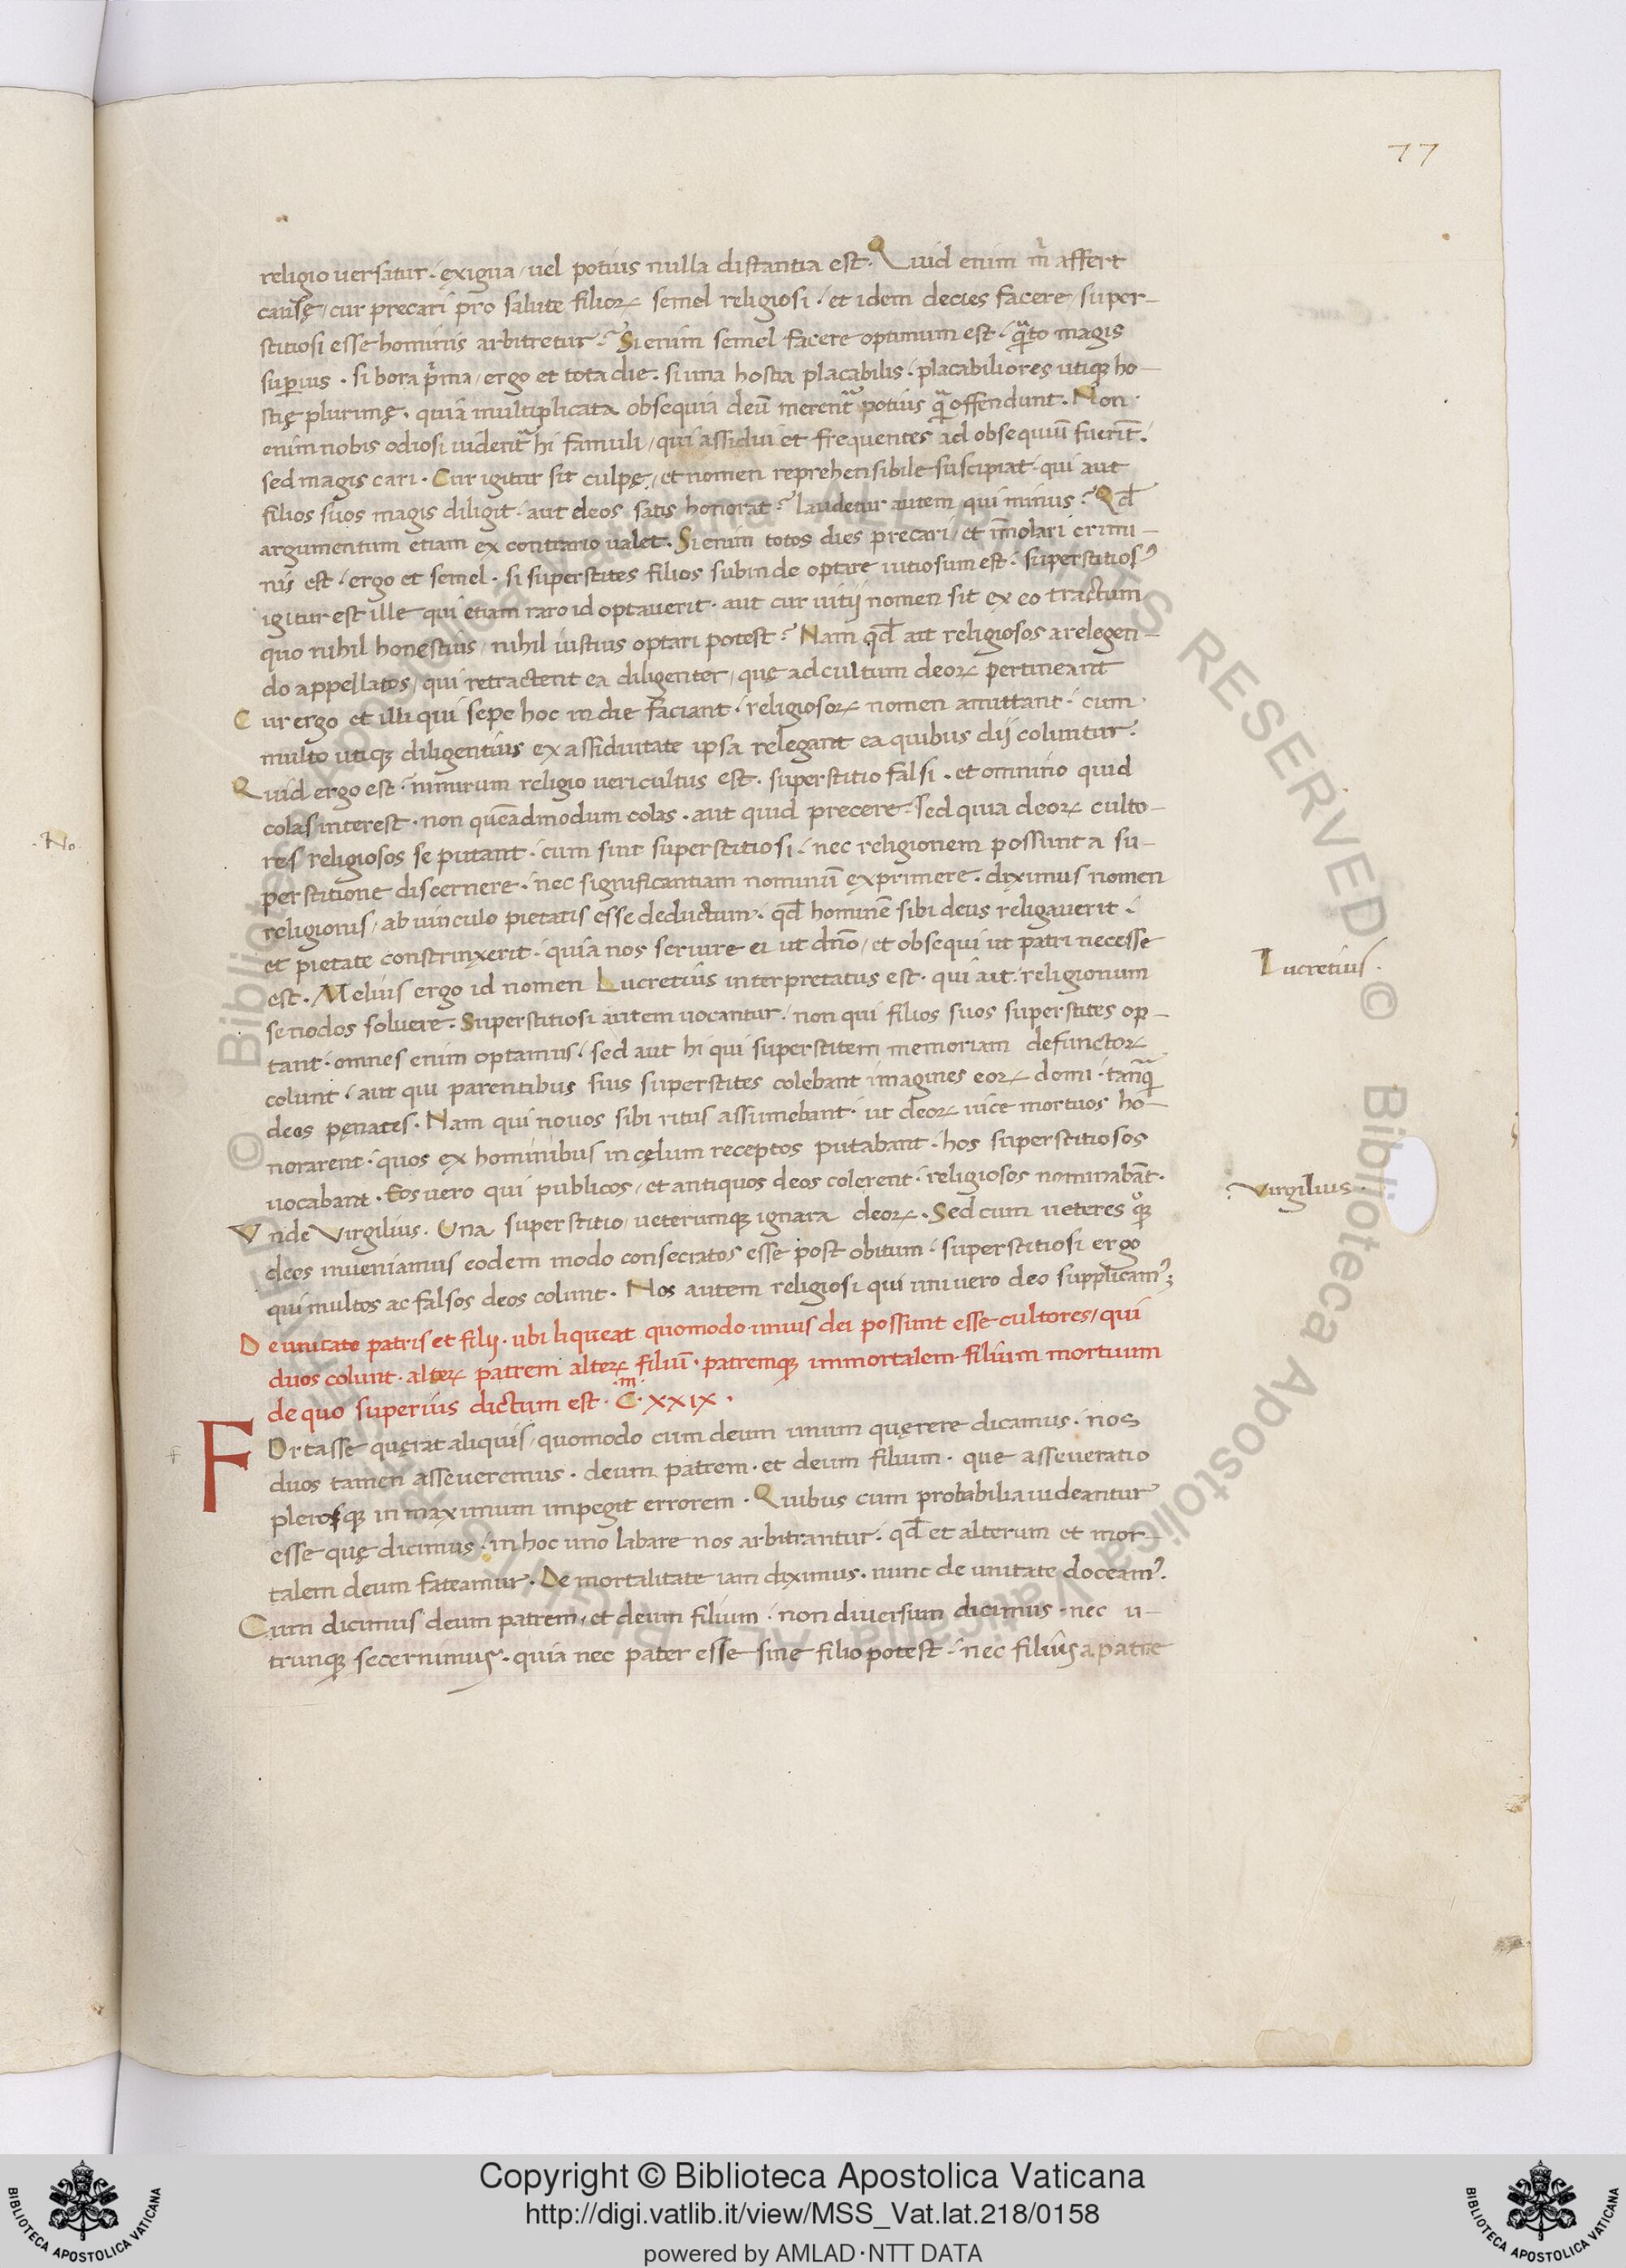 77
religio uersatur. exigua / uel potius nulla distantia est. Quid enim m̄ affert
causę / cur precari pro salute filioꝝ semel religiosi. et idem decies facere super-
stitiosi esse hominis arbitretur? Si enim semel facere optimum est. q̃to magis
suꝑius. si hora p̾ma / ergo et tota die. si una hostia placabilis. placabiliores utiqꝫ ho-
stię plurimę. quia multiplicata obsequia deū merent̃ potius q̃ offendunt. Non
enim nobis odiosi uident̃ hi famuli / qui assidui et frequentes ad obsequiū fuerīt.
sed magis cari. Cur igitur sit culpę / et nomen reprehensibile suscipiat. qui aut
filios suos magis diligit. aut deos satis honorat? laudetur autem qui minus? Qđ
argumentum etiam ex contrario ualet. Si enim totos dies precari / et īmolari crimi-
nis est. ergo et semel. si superstites filios subinde optare uitiosum est. superstitiosꝰ
igitur est ille qui etiam raro id optauerit. aut cur uitij nomen sit ex eo tractum
quo nihil honestius / nihil iustius optari potest? Nam qđ ait religiosos a relegen-
do appellatos / qui retractent ea diligenter / quę ad cultum deoꝝ pertineant
Cur ergo et illi qui sepe hoc in die faciant. religiosoꝝ nomen amittant. cum
multo utiqꝫ diligentius ex assiduitate ipsa relegant ea quibus dij coluntur.
Quid ergo est. nimirum religio ueri cultus est. superstitio falsi. et omnino quid
colas interest. non quēadmodum colas. aut quid precere. Sed quia deoꝝ culto-
res religiosos se putant. cum sint superstitiosi. nec religionem possunt a su-
perstitione discernere. nec significantiam nominū exprimere. diximus nomen
religionis / ab uinculo pietatis esse deductum. qđ hominē sibi deus religauerit.
et pietate constrinxerit. quia nos seruire ei ut dño / et obsequi ut patri necesse
est. Melius ergo id nomen Lucretius interpretatus est. qui ait. religionum
se nodos soluere. Superstitiosi autem uocantur. non qui filios suos superstites op-
tant. omnes enim optamus. sed aut hi qui superstitem memoriam defunctoꝝ
colunt. aut qui parentibus suis superstites colebant imagines eoꝝ domi. tanq̃
deos penates. Nam qui nouos sibi ritus assumebant. ut deoꝝ uice mortuos ho-
norarent. quos ex hominibus in cęlum receptos putabant. hos superstitiosos
uocabant. Eos uero qui publicos / et antiquos deos colerent. religiosos nominabāt.
Vnde Virgilius. Vna superstitio / ueterumqꝫ ignara deoꝝ. Sed cum ueteres qͦꝫ
deos inueniamus eodem modo consecratos esse post obitum. superstitiosi ergo
qui multos ac falsos deos colunt. Nos autem religiosi qui uni uero deo supplicamꝰ;
De unitate patris et filij. ubi liqueat quomodo unius dei possunt esse cultores / qui
duos colunt. alteꝝ patrem alteꝝ filiū. patremqꝫ immortalem filium mortuum
de quo superius dictum est. C.m XXIX.
FOrtasse quęrat aliquis / quomodo cum deum unum quęrere dicamus. nos
duos tamen asseueremus. deum patrem. et deum filium. que asseueratio
plerosqꝫ in maximum impegit errorem. Quibus cum probabilia uideantur
esse quę dicimus. in hoc uno labare nos arbitrantur. qđ et alterum et mor-
talem deum fateamur. De mortalitate iam diximus. nunc de unitate doceamꝰ.
Cum dicimus deum patrem, et deum filium. non diuersum dicimus. nec u-
trunqꝫ secernimus. quia nec pater esse sine filio potest. nec filius a patre
.No.
Lucretius.
Virgilius.
f
Copyright © Biblioteca Apostolica Vaticana
http://digi.vatlib.it/view/MSS_Vat.lat.218/0158
powered by AMLAD·NTT DATA
BIBLIOTECA APOSTOLICA VATICANA
BIBLIOTECA APOSTOLICA VATICANA